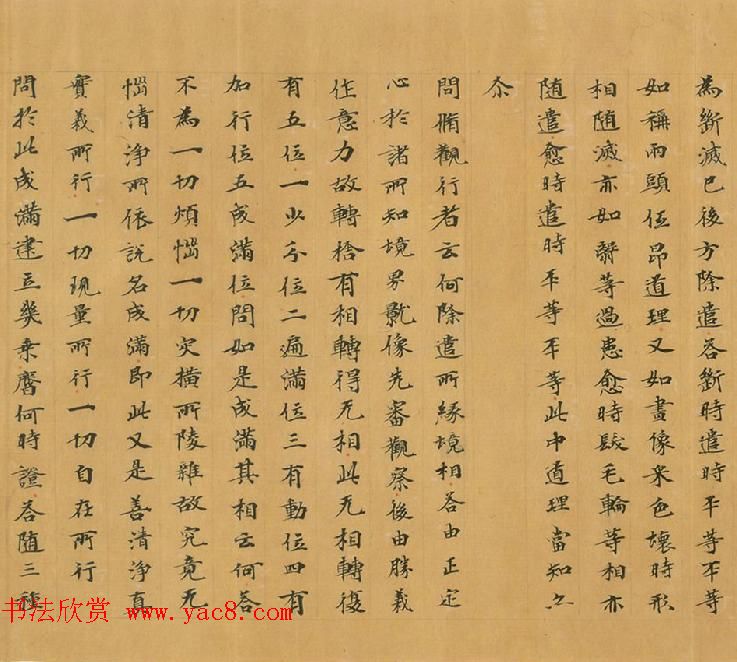 為斷滅已後方除遣荅斷時遣時平等平等
如稱兩頭伍昂道理又如畫像采色壞時形
相随滅亦如翳等過患愈時髮毛輪等相亦
随遣愈時遣時平等平等此中道理當知亦
尒
問脩觀行者云何除遣所緣境相荅由正定
心於諸所知境界影像先審觀察後由勝義
作意力故轉捨有相轉得无相此无相轉復
有五位一少分位二遍滿位三有動位四有
加行位五成滿位問如是成滿其相云何荅
不為一切煩惱一切灾横所陵雜故究竟无
惱清淨所依說名成滿即此又是善清淨真
實義所行一切現量所行一切自在所行
問於此成滿建立幾乘膺何時證荅随三種
书法欣赏 www.yac8.com